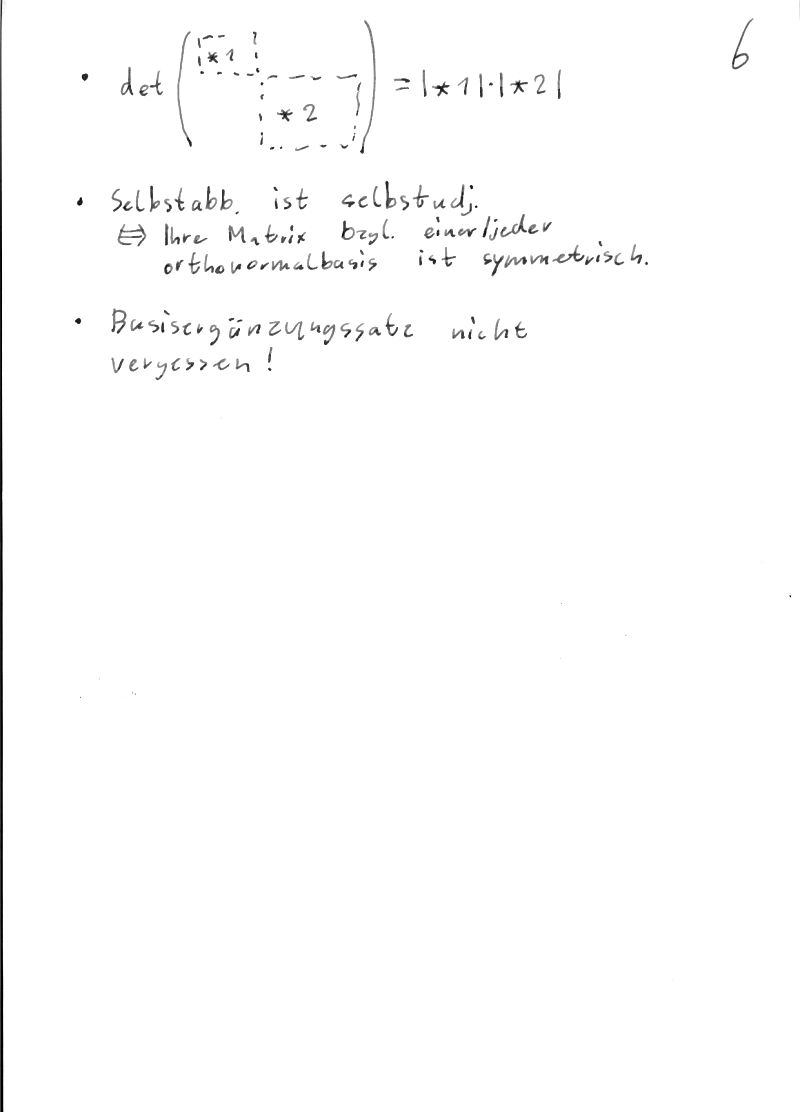 6
• det ( *1 *2 ) = |*1|·|*2|
• Selbstabb. ist selbstadj.
⇔ Ihre Matrix bzgl. einer/jeder
orthonormalbasis ist symmetrisch.
• Basisergänzungssatz nicht
vergessen!